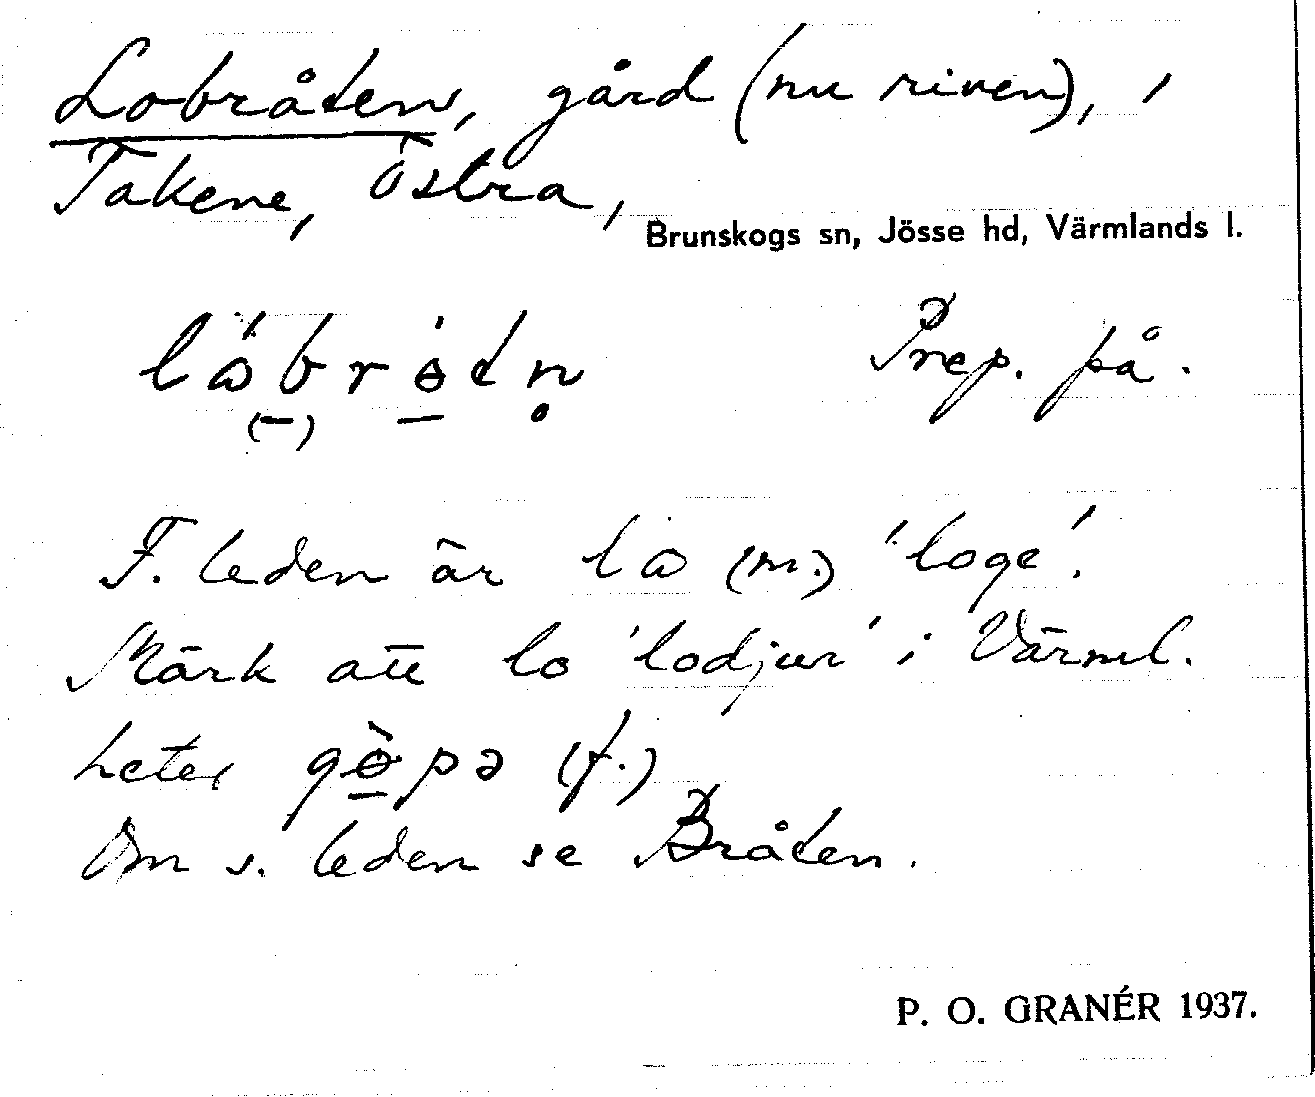 Lobråten, gård (nu riven), i
Takene, Östra,
Brunskogs sn, Jösse hd, Värmlands l.
Prep. på.
F. leden är lɷ (m.) 'loge'.
Märk att lo 'lodjur' i Värml.
heter gö̀pə (f.)
Om s. leden se Bråten.
P. O. GRANÉR 1937.